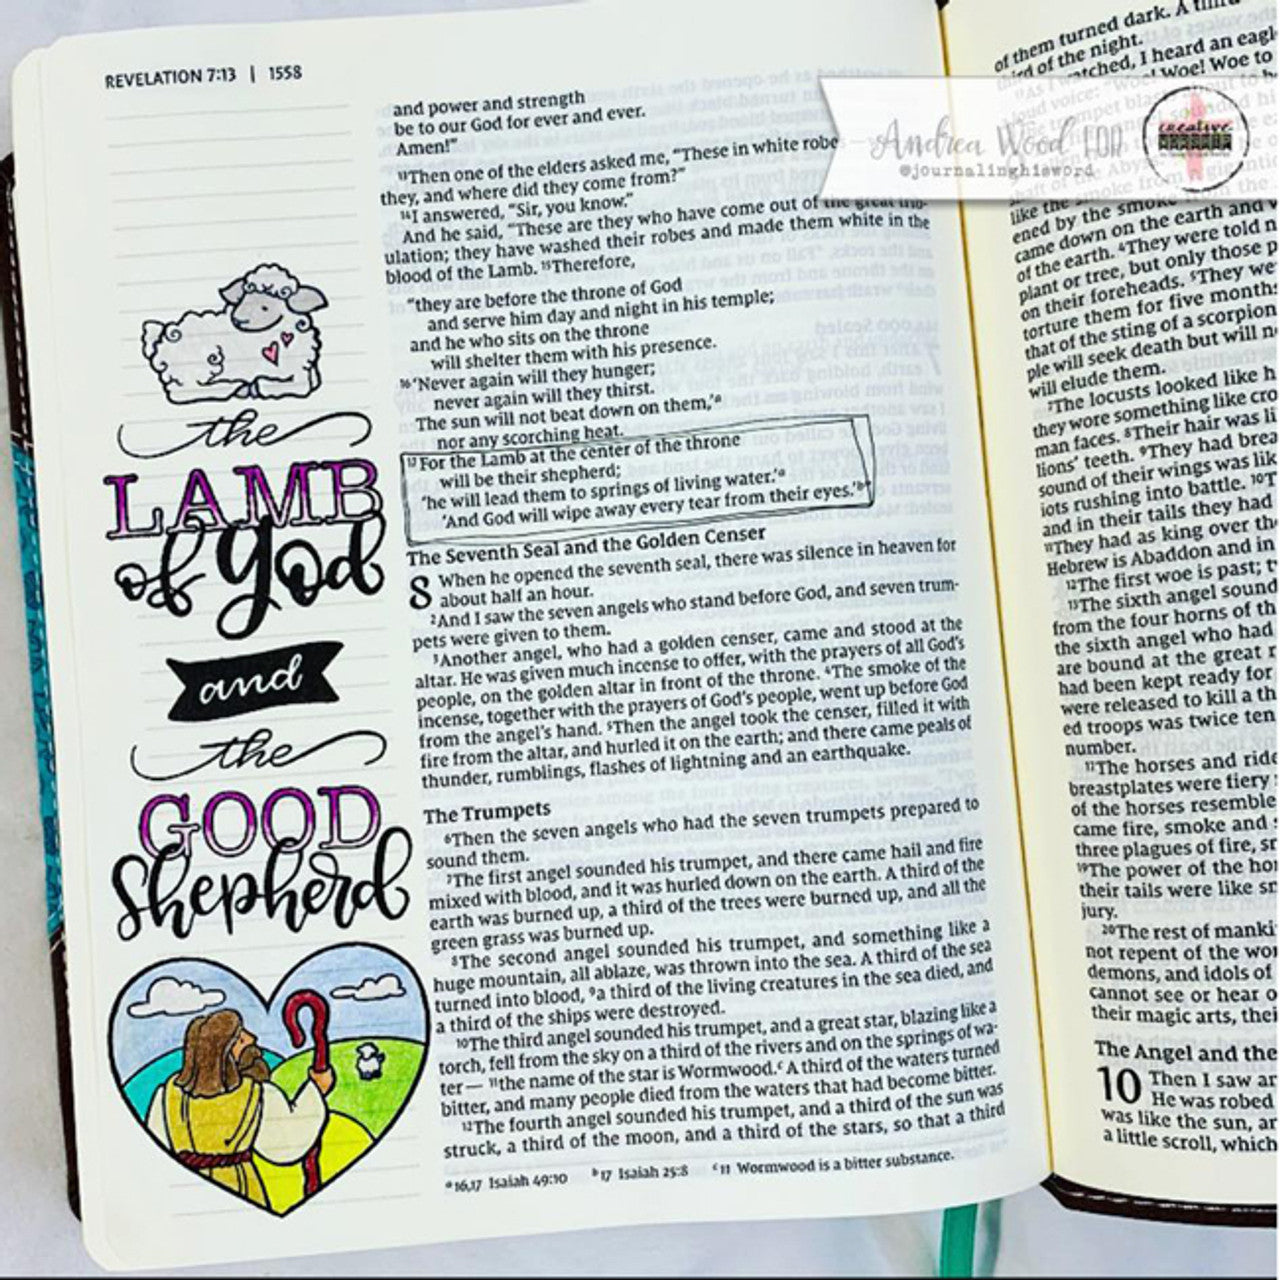 REVELATION 7:13 | 1558
the
LAMB
of God
and
the
GOOD
Shepherd
and power and strength
be to our God for ever and ever.
Amen!”
¹³Then one of the elders asked me, “These in white robe
they, and where did they come from?”
¹⁴I answered, “Sir, you know.”
And he said, “These are they who have come out of the great trib-
ulation; they have washed their robes and made them white in the
blood of the Lamb. ¹⁵Therefore,
“they are before the throne of God
and serve him day and night in his temple;
and he who sits on the throne
will shelter them with his presence.
¹⁶‘Never again will they hunger;
never again will they thirst.
The sun will not beat down on them,’ᵃ
nor any scorching heat.
¹⁷For the Lamb at the center of the throne
will be their shepherd;
‘he will lead them to springs of living water.’ᵃ
‘And God will wipe away every tear from their eyes.’ᵇ”
The Seventh Seal and the Golden Censer
8 When he opened the seventh seal, there was silence in heaven for
about half an hour.
²And I saw the seven angels who stand before God, and seven trum-
pets were given to them.
³Another angel, who had a golden censer, came and stood at the
altar. He was given much incense to offer, with the prayers of all God’s
people, on the golden altar in front of the throne. ⁴The smoke of the
incense, together with the prayers of God’s people, went up before God
from the angel’s hand. ⁵Then the angel took the censer, filled it with
fire from the altar, and hurled it on the earth; and there came peals of
thunder, rumblings, flashes of lightning and an earthquake.
The Trumpets
⁶Then the seven angels who had the seven trumpets prepared to
sound them.
⁷The first angel sounded his trumpet, and there came hail and fire
mixed with blood, and it was hurled down on the earth. A third of the
earth was burned up, a third of the trees were burned up, and all the
green grass was burned up.
⁸The second angel sounded his trumpet, and something like a
huge mountain, all ablaze, was thrown into the sea. A third of the sea
turned into blood, ⁹a third of the living creatures in the sea died, and
a third of the ships were destroyed.
¹⁰The third angel sounded his trumpet, and a great star, blazing like a
torch, fell from the sky on a third of the rivers and on the springs of wa-
ter— ¹¹the name of the star is Wormwood.ᶜ A third of the waters turned
bitter, and many people died from the waters that had become bitter.
¹²The fourth angel sounded his trumpet, and a third of the sun was
struck, a third of the moon, and a third of the stars, so that a third
ᵃ16,17 Isaiah 49:10 ᵇ17 Isaiah 25:8 ᶜ11 Wormwood is a bitter substance.
of them turned dark. A third
third of the night.
¹³As I watched, I heard an eagl
loud voice: “Woe! Woe! Woe to
Andrea Wood FOR
@journalinghisword
creative
like the smoke from
ened by the smoke
came down on the earth and
of the earth. ⁴They were told n
plant or tree, but only those p
on their foreheads. ⁵They we
torture them for five months
that of the sting of a scorpion
ple will seek death but will n
will elude them.
⁷The locusts looked like h
they wore something like cro
man faces. ⁸Their hair was li
lions’ teeth. ⁹They had brea
sound of their wings was lik
iots rushing into battle. ¹⁰T
and in their tails they had
¹¹They had as king over th
Hebrew is Abaddon and in
¹²The first woe is past; t
¹³The sixth angel sound
from the four horns of th
the sixth angel who had
are bound at the great r
had been kept ready for
were released to kill a th
ed troops was twice ten
number.
¹⁷The horses and ride
breastplates were fiery
of the horses resemble
came fire, smoke and
three plagues of fire, sm
¹⁹The power of the hor
their tails were like sn
jury.
²⁰The rest of manki
not repent of the wor
demons, and idols of
cannot see or hear o
their magic arts, thei
The Angel and the
10 Then I saw an
He was robed
was like the sun, an
a little scroll, which